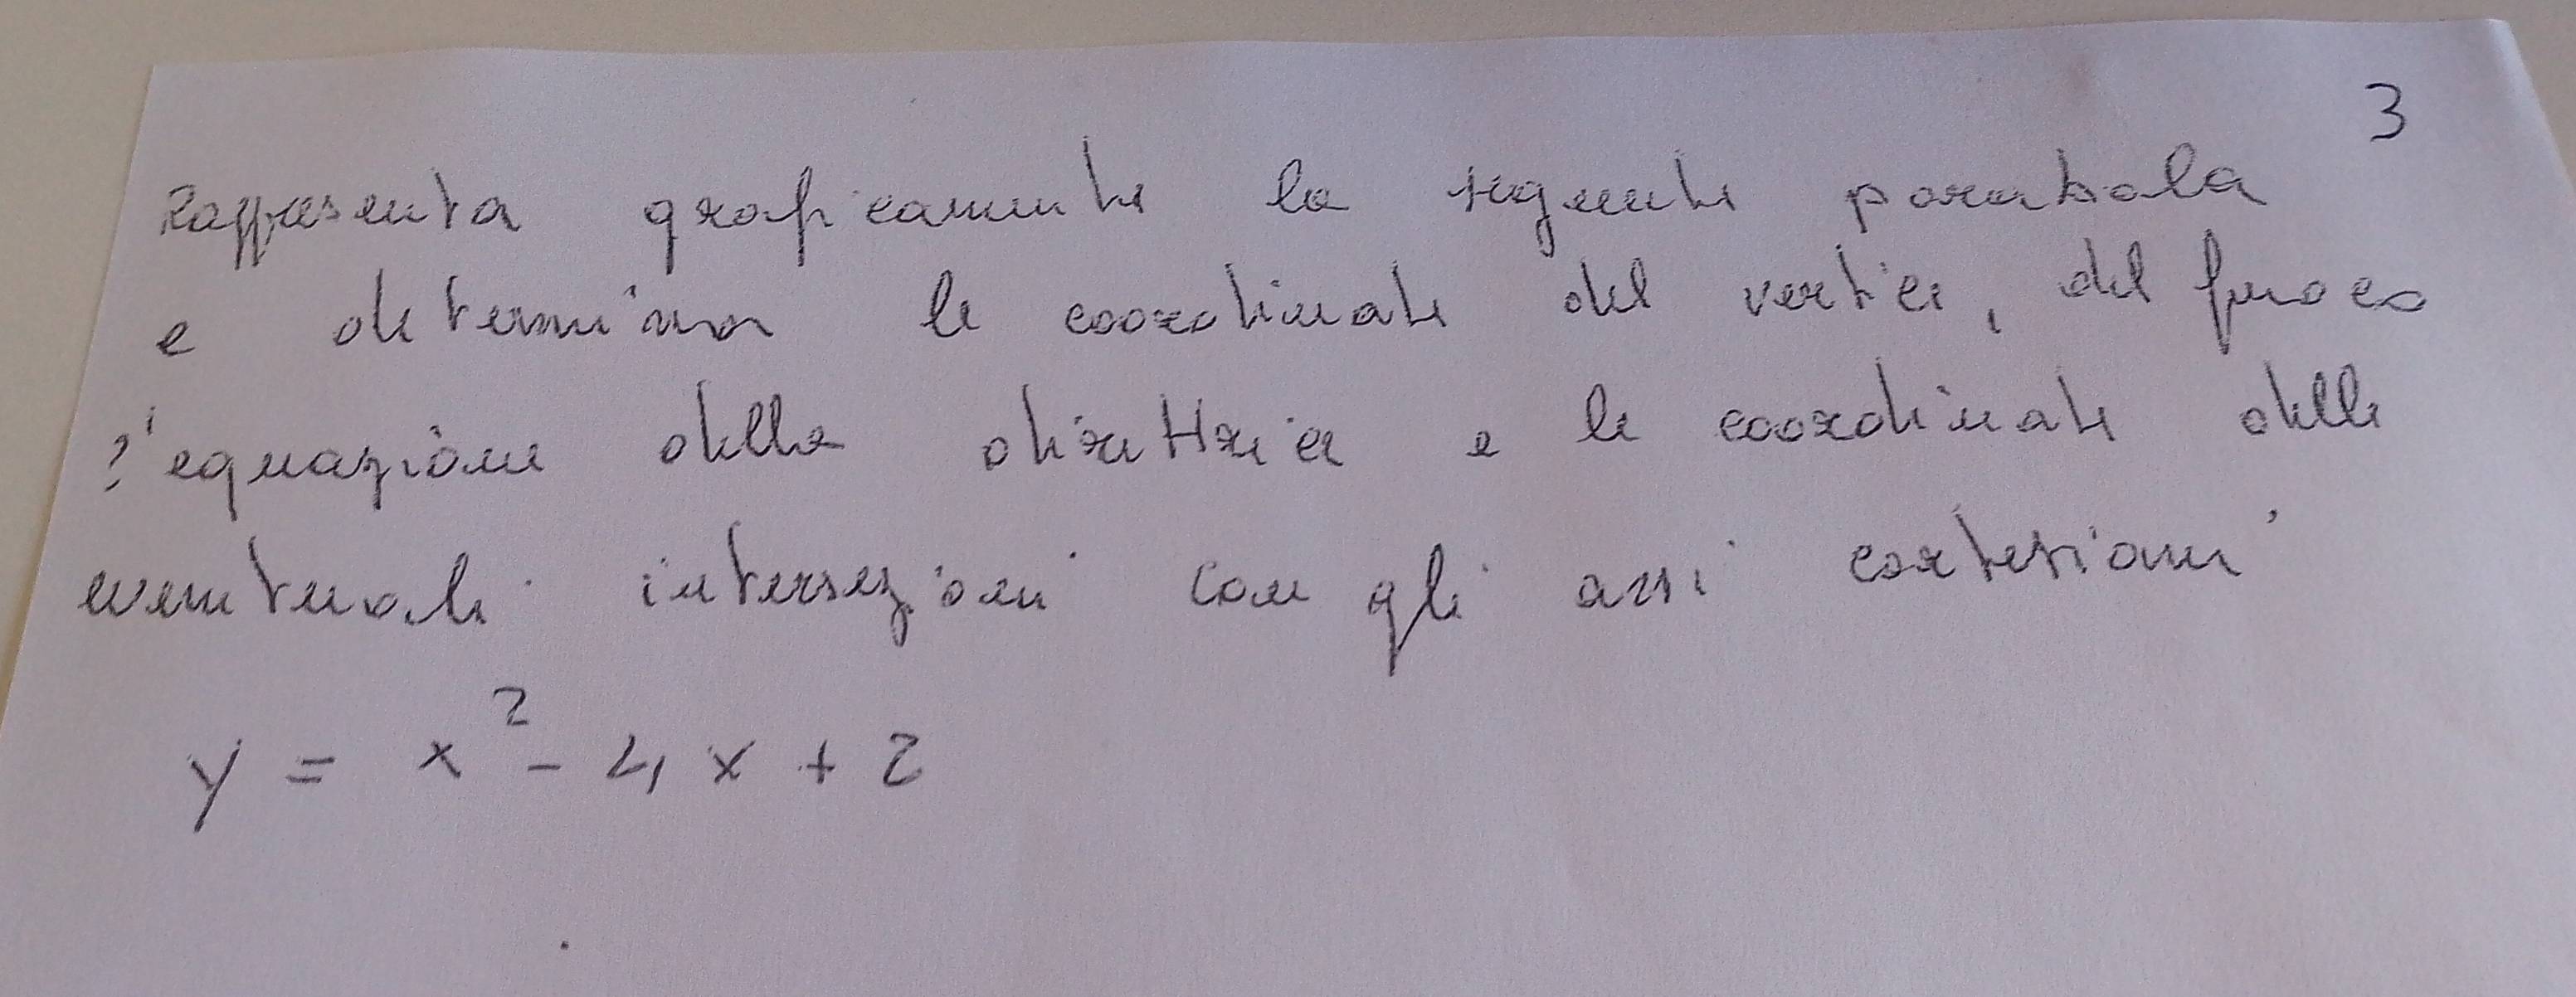 3
Rappresenta graficamente la seguente parabola
e determina le coordinate del vertice, del fuoco
l'equazione della direttrice e le coordinate delle
eventuali intersezioni con gli assi cartesiani
y = x² - 4x + 2